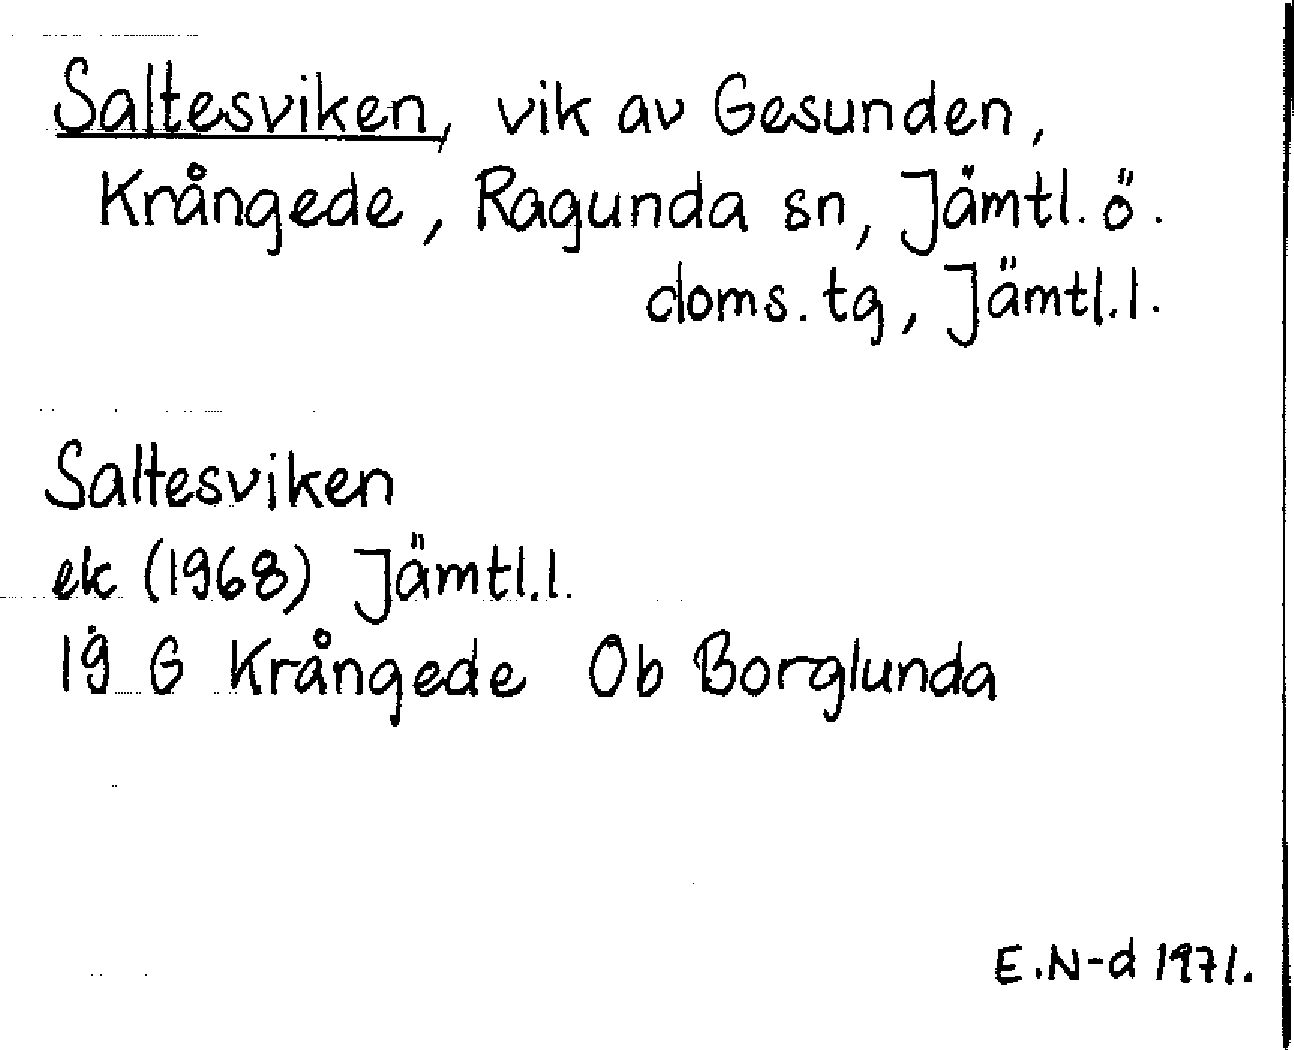 Saltesviken, vik av Gesunden,
Krångede, Ragunda sn, Jämtl. ö.
doms. tg, Jämtl. l.
Saltesviken
ek (1968) Jämtl. l.
19 G Krångede Ob Borglunda
E.N-d 1971.